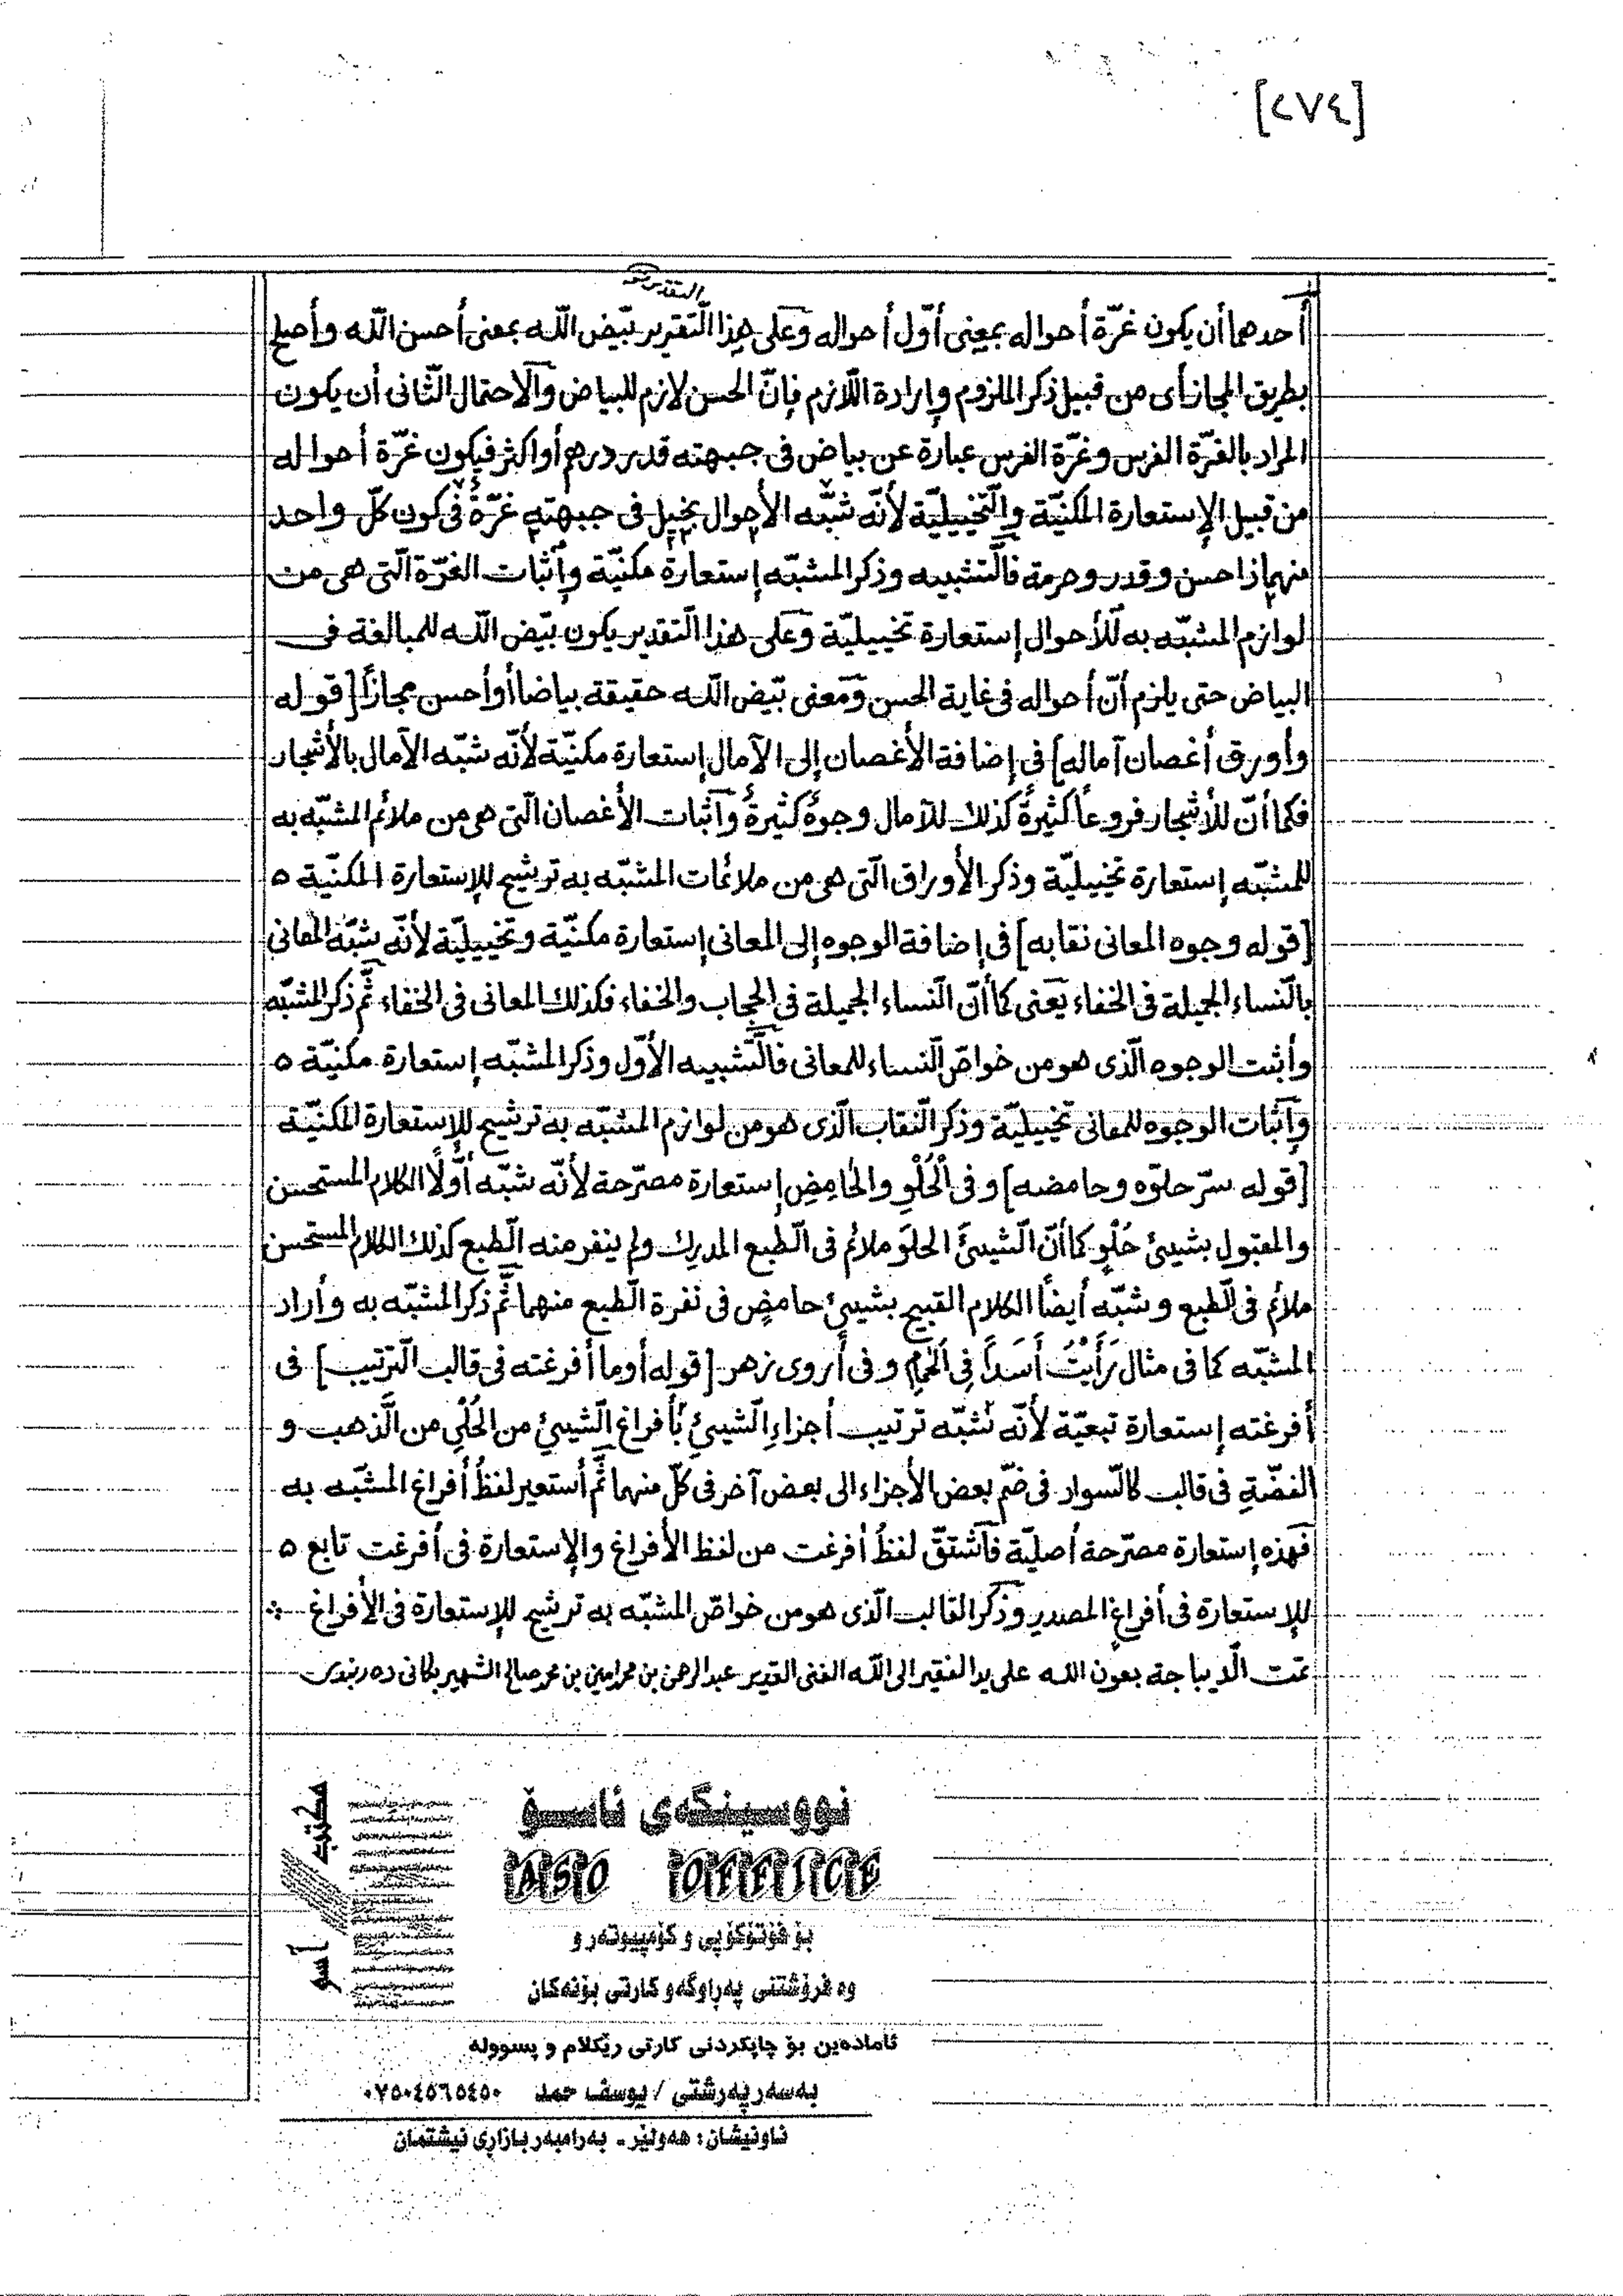 [٢٧٤]
التقدير
أحدهما أن يكون غرّة أحواله بمعنى أوّل أحواله وعلى هذا التّقرير بيّض اللّه بمعنى أحسن اللّه وأصلح
بطريق المجاز أى من قبيل ذكر الملزوم وإرادة اللّازم فإنّ الحسن لازم للبياض والاحتمال الثّانى أن يكون
المراد بالغرّة الفرس وغرّة الفرس عبارة عن بياض فى جبهته قدر درهم أو اكثر فيكون غرّة أحواله
من قبيل الإستعارة المكنيّة والتّخييليّة لأنّه شبّه الأحوال بخيل فى جبهته غرّةٌ فى كون كلّ واحد
منهما ذا حسن وقدر وحرمة فالتّشبيه وذكر المشبّه إستعارة مكنيّة وإثبات الغرّة الّتى هى من
لوازم المشبّه به للأحوال إستعارة تخييليّة وعلى هذا التّقدير يكون بيّض اللّه للمبالغة فى
البياض حتى يلزم أنّ أحواله فى غاية الحسن ومعنى بيّض اللّه حقيقة بياضا أو أحسن مجازًا [قوله
وأورق أغصان آماله] فى إضافة الأغصان إلى الآمال إستعارة مكنيّة لأنّه شبّه الآمال بالأشجار
فكما أنّ للأشجار فروعًا كثيرةً كذلك للآمال وجوهٌ كثيرةٌ وإثبات الأغصان الّتى هى من ملائم المشبّه به
للمشبّه إستعارة تخييليّة وذكر الأوراق الّتى هى من ملائمات المشبّه به ترشيح للإستعارة المكنيّة ٥
[قوله وجوه المعانى نقابه] فى إضافة الوجوه إلى المعانى إستعارة مكنيّة وتخييليّة لأنّه شبّه المعانى
بالنّساء الجميلة فى الخفاء يعنى كما أنّ النّساء الجميلة فى الحجاب والخفاء فكذلك المعانى فى الخفاء ثمّ ذكر المشبّه
وأثبت الوجوه الّذى هو من خواصّ النّساء للمعانى فالتّشبيه الأوّل وذكر المشبّه إستعارة مكنيّة ٥
وإثبات الوجوه للمعانى تخييليّة وذكر النّقاب الّذى هو من لوازم المشبّه به ترشيح للإستعارة المكنيّة
[قوله سرّ حلوّه وحامضه] و فى الْحُلْوِ والحَامِضِ إستعارة مصرّحة لأنّه شبّه أوّلًا الكلام المستحسن
والمقبول بشيئ حُلْوٍ كما أنّ الشّيئَ الحلوَ ملائم فى الطّبع المدرك ولم ينفر منه الطّبع كذلك الكلام المستحسن
ملائم فى الطّبع وشبّه أيضًا الكلام القبيح بشيئ حامضٍ فى نفرة الطّبع منهما ثمّ ذكر المشبّه به وأراد
المشبّه كما فى مثال رَأَيْتُ أَسَدًا فِى الحَمَّامِ و فى أروى زهر [قوله أو ما أفرغته فى قالب التّرتيب] فى
أفرغته إستعارة تبعيّة لأنّه شبّه ترتيب أجزاءِ الشّيئِ بأفراغ الشّيئِ من الحُلْىِ من الذّهب و
الفضّةِ فى قالب كالسّوار فى ضمّ بعض الأجزاء الى بعض آخر فى كلّ منهما ثمّ أستعير لفظُ أفراغ المشبّه به
فهذه إستعارة مصرّحة أصليّة فآشتقّ لفظُ أفرغت من لفظ الأفراغ والإستعارة فى أفرغت تابع ٥
للإستعارة فى أفراغ المصدر وذكر القالب الّذى هو من خواصّ المشبّه به ترشيح للإستعارة فى الأفراغ
تمت الدّيباجة بعون اللّه على يد الفقير الى اللّه الغنى القدير عبدالرحمن بن محمدامين بن محمدصالح الشهير بكانى ده ربندى
نووسینگەی ئاسۆ
ASO OFFICE
مكتب آسو
بۆ فۆتۆكۆپی و كۆمپیوتەر و
وە فرۆشتنی پەڕاوگە و كارتی بۆنەكان
ئامادەین بۆ چاپكردنی كارتی رێكلام و پسوولە
بەسەرپەرشتی / یوسف حمد ٠٧٥٠٤٥٦٥٤٥٠
ناونیشان: هەولێر - بەرامبەر بازاڕی نیشتمان